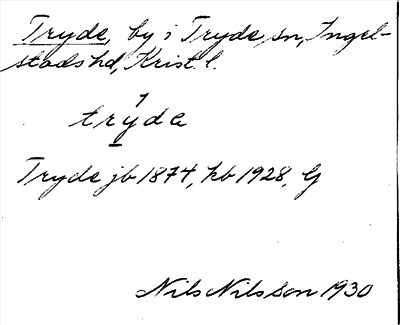 Tryde, by i Tryde sn, Ingel-
stads hd, Krist. l.
trýde
Tryde jb 1874, kb 1928, G
Nils Nilsson 1930